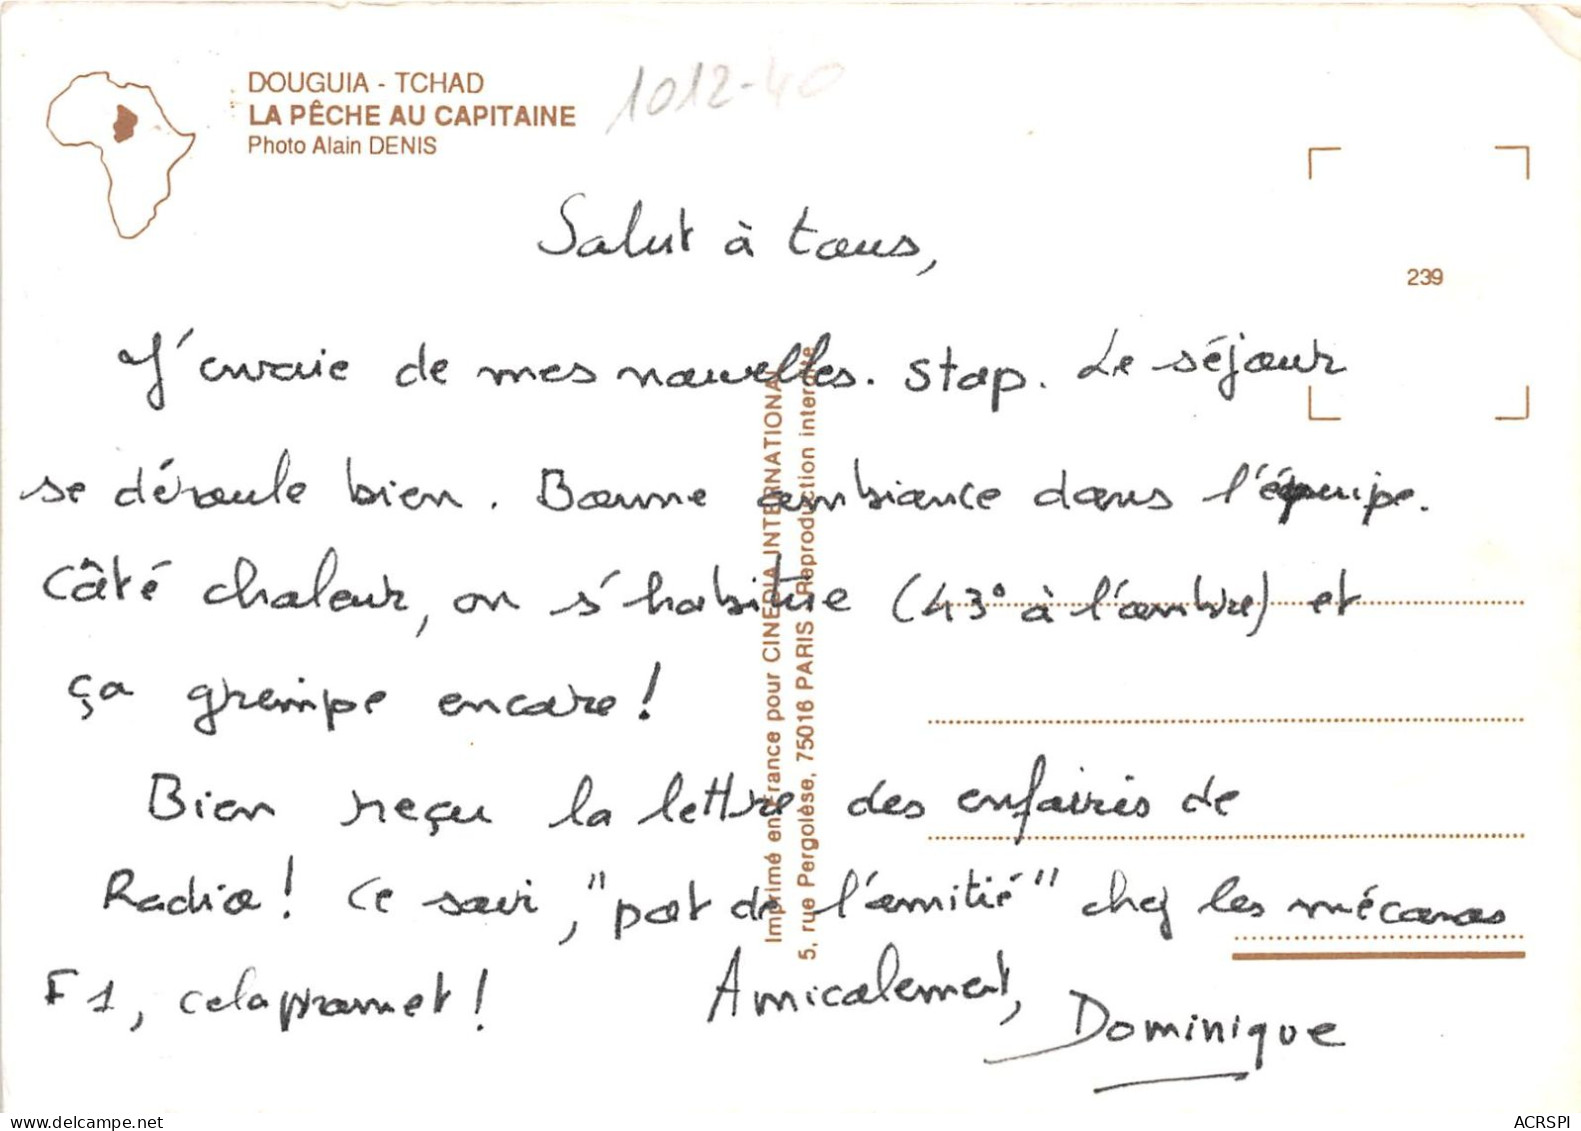 DOUGUIA - TCHAD
LA PÊCHE AU CAPITAINE
Photo Alain DENIS
1012-40
239
Salut à tous,
J'envoie de mes nouvelles. Stop. Le séjour
se déroule bien. Bonne ambiance dans l'équipe.
Côté chaleur, on s'habitue (43° à l'ombre) et
ça grimpe encore !
Bien reçu la lettre des enfoirés de
Radio ! Ce soir, "pot de l'amitié" chez les mécanos
F1, cela promet !
Amicalement,
Dominique
Imprimé en France pour CINEDIA INTERNATIONAL
5, rue Pergolèse, 75016 PARIS - Reproduction interdite
ACRSPI